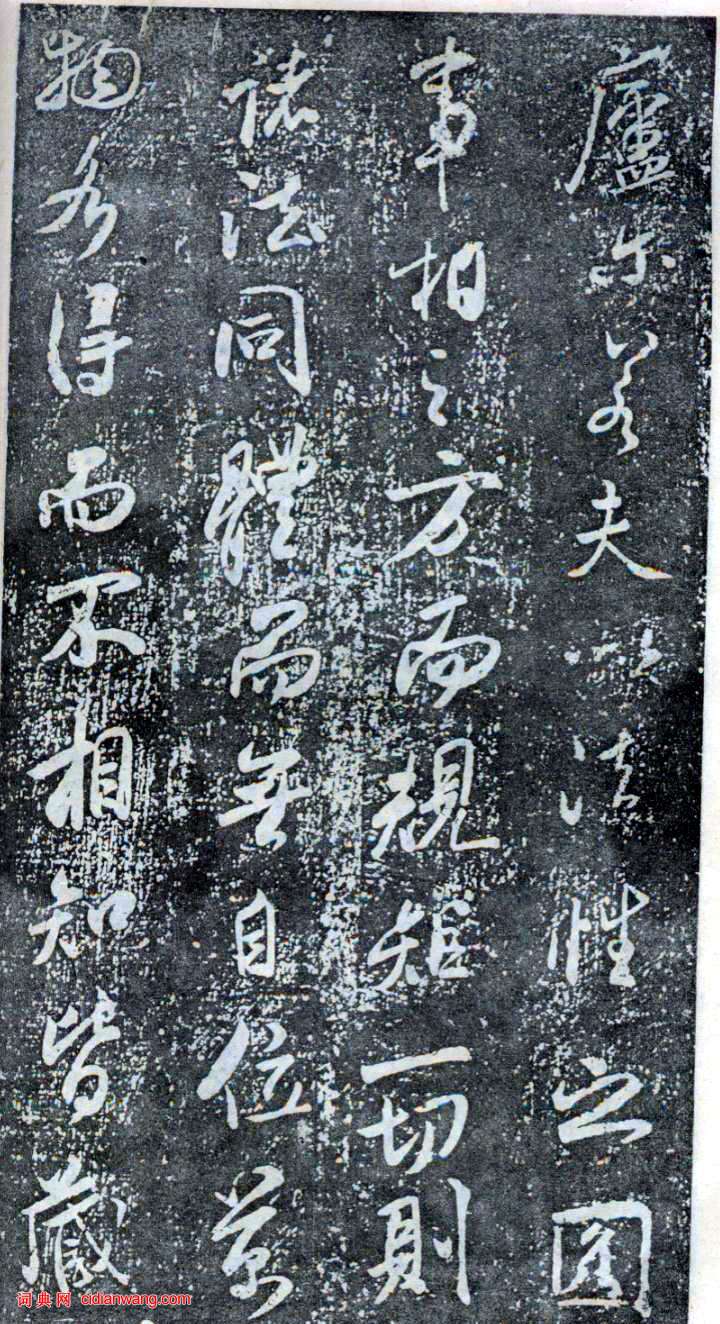 廬尔若夫以法性之圓
事相之方而規矩一切則
諸法同體而無自位萬
物各得而不相知皆藏
词典网 cidianwang.com